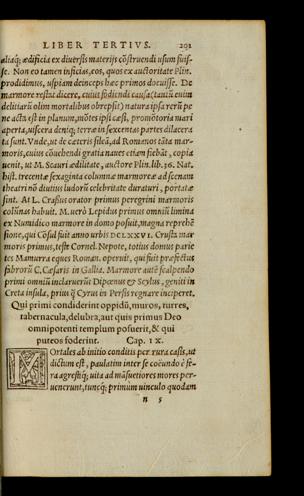 LIBER TERTIVS. 291
aliaq́; ædificia ex diuersis materijs cõstruendi usum fuis-
se. Non eo tamen inficias, eos, quos ex auctoritate Plin.
prodidimus, uspiam deinceps hæc primos docuisse. De
marmore restat dicere, cuius fodiendi causa (tantũ enim
delitiarũ olim mortalibus obrepsit) natura ipsa rerũ pe
ne acta est in planum, mõtes ipsi cæsi, promõtoria mari
aperta, uiscera deniq; terræ in sexcentas partes dilacera
ta sunt. Vnde, ut de cæteris sileã, ad Romanos tãta mar-
moris, cuius cõuehendi gratia naues etiam fiebãt, copia
uenit, ut M. Scauri ædilitate, auctore Plin. lib. 36. Nat.
hist. trecentæ sexaginta columnæ marmoreæ ad scenam
theatri nõ diutius ludorũ celebritate duraturi, portatæ
sint. At L. Crassus orator primus peregrini marmoris
colũnas habuit. M. uerò Lepidus primus omniũ limina
ex Numidico marmore in domo posuit, magna reprehẽ
sione, qui Cõsul fuit anno urbis DCLXXVI. Crustæ mar
moris primus, teste Cornel. Nepote, totius domus parie
tes Mamurra eques Roman. operuit, qui fuit præfectus
fabrorũ C. Cæsaris in Gallia. Marmore autẽ scalpendo
primi omniũ inclaruerũt Dipœnus & Scylus, geniti in
Creta insula, prius q̃ Cyrus in Persis regnare inciperet.
Qui primi condiderint oppidũ, muros, turres,
tabernacula, delubra, aut quis primus Deo
omnipotenti templum posuerit, & qui
puteos foderint. Cap. IX.
MOrtales ab initio conditis per rura casis, ut
dictum est, paulatim inter se coëundo è fe-
ra agrestiq́; uita ad mãsuetiores mores per-
uenerunt, tuncq́; primùm uinculo quodam
n 5